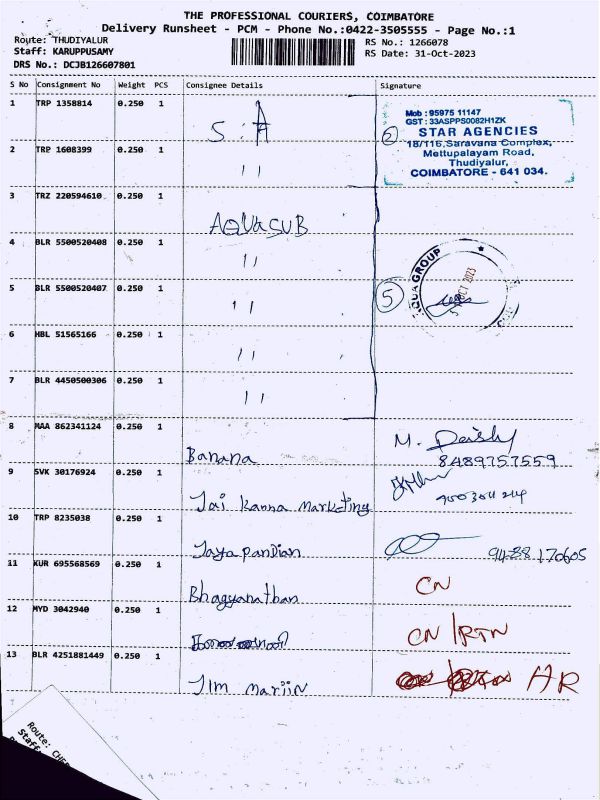 THE PROFESSIONAL COURIERS, COIMBATORE
Delivery Runsheet - PCM - Phone No.:0422-3505555 - Page No.:1
Route: THUDIYALUR
RS No.: 1266078
Staff: KARUPPUSAMY
RS Date: 31-Oct-2023
DRS No.: DCJB126607801
S No Consignment No Weight PCS Consignee Details Signature
1 TRP 1358814 0.250 1
S. A
Mob : 95975 11147
GST : 33ASPPS0082H1ZK
STAR AGENCIES
18/116,Saravana Complex,
Mettupalayam Road,
Thudiyalur,
COIMBATORE - 641 034.
2 TRP 1608399 0.250 1
11
3 TRZ 220594610 0.250 1
AQUASUB
4 BLR 5500520408 0.250 1
11
AQUA GROUP
OCT 2023
5 BLR 5500520407 0.250 1
11
5
6 HBL 51565166 0.250 1
11
7 BLR 4450500306 0.250 1
11
8 MAA 862341124 0.250 1
Banana
M. Daishy
8489757559
9 SVK 30176924 0.250 1
Jai Kanna Marketing
10 TRP 8235038 0.250 1
Jaya Pandian
9488170605
11 KUR 695568569 0.250 1
Bhagyanathan
CN
12 MYD 3042940 0.250 1
CN/RTN
13 BLR 4251881449 0.250 1
JIM Marjin
AR
Route:
Staff: